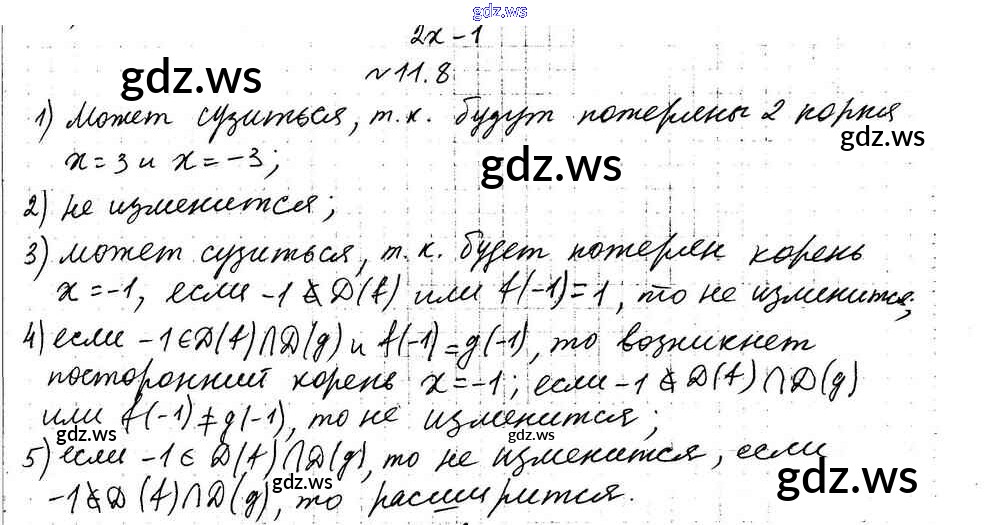 gdz.ws
2x-1
gdz.ws
№11.8
1) Может сузиться, т.к. будут потеряны 2 корня
gdz.ws
x=3 и x=-3;
gdz.ws
2) не изменится;
3) может сузиться, т.к. будет потерян корень
x=-1, если -1 ∉ D(f) или f(-1)=1, то не изменится;
4) если -1∈D(f)∩D(g) и f(-1)=g(-1), то возникнет
посторонний корень x=-1; если -1 ∉ D(f)∩D(g)
или f(-1)≠g(-1), то не изменится;
gdz.ws
gdz.ws
5) если -1∈ D(f)∩D(g), то не изменится, если
gdz.ws
gdz.ws
-1∉D (f)∩D(g), то расширится.